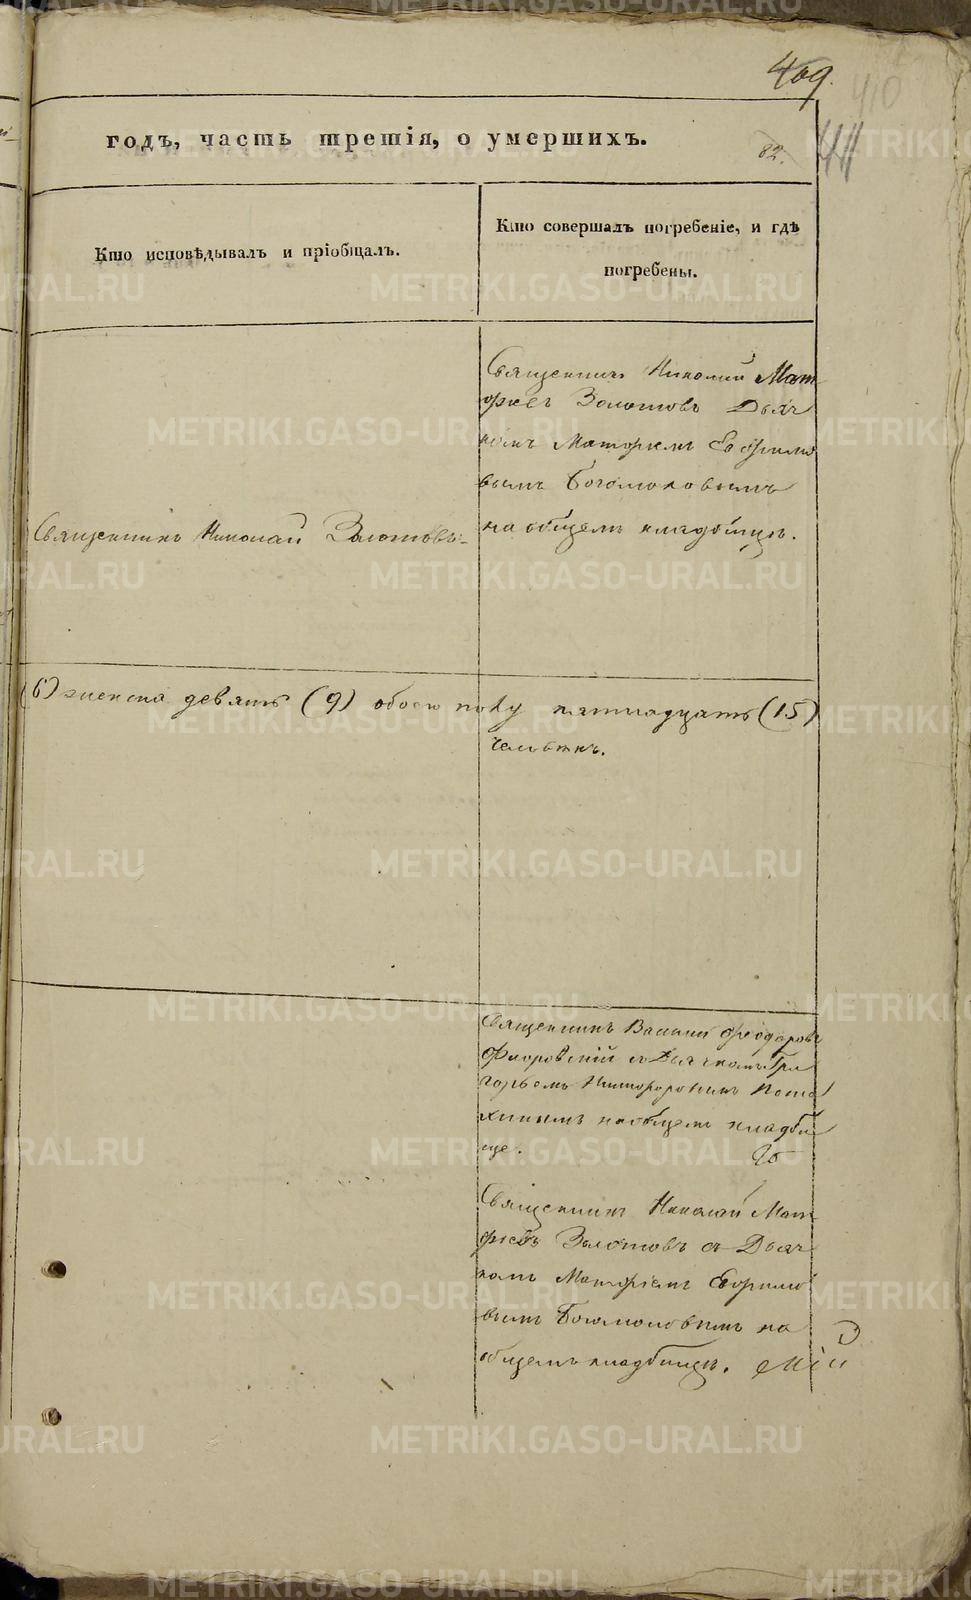 409.
410
411
годъ, часть третія, о умершихъ.
82.
Кто исповѣдывалъ и пріобщалъ.
Кто совершалъ погребеніе, и гдѣ
погребены.
Священникъ Николай Мат
фіевъ Золотовъ Дьяч
комъ Матфіемъ Ефимо
вымъ Богомоловымъ
на общемъ кладбищѣ.
Священникъ Николай Золотовъ
(6) женска девять (9) обоего полу пятнадцать (15)
человѣкъ.
Священникъ Василій Феодоровъ
Флоровскій съ Дьячкомъ Гри
горьемъ
хинымъ на общемъ кладби
ще.
Священникъ Николай Мат
фіевъ Золотовъ съ Дьяч
комъ Матфіемъ Ефимо
вымъ Богомоловымъ на
общемъ кладбищѣ.
METRIKI.GASO-URAL.RU